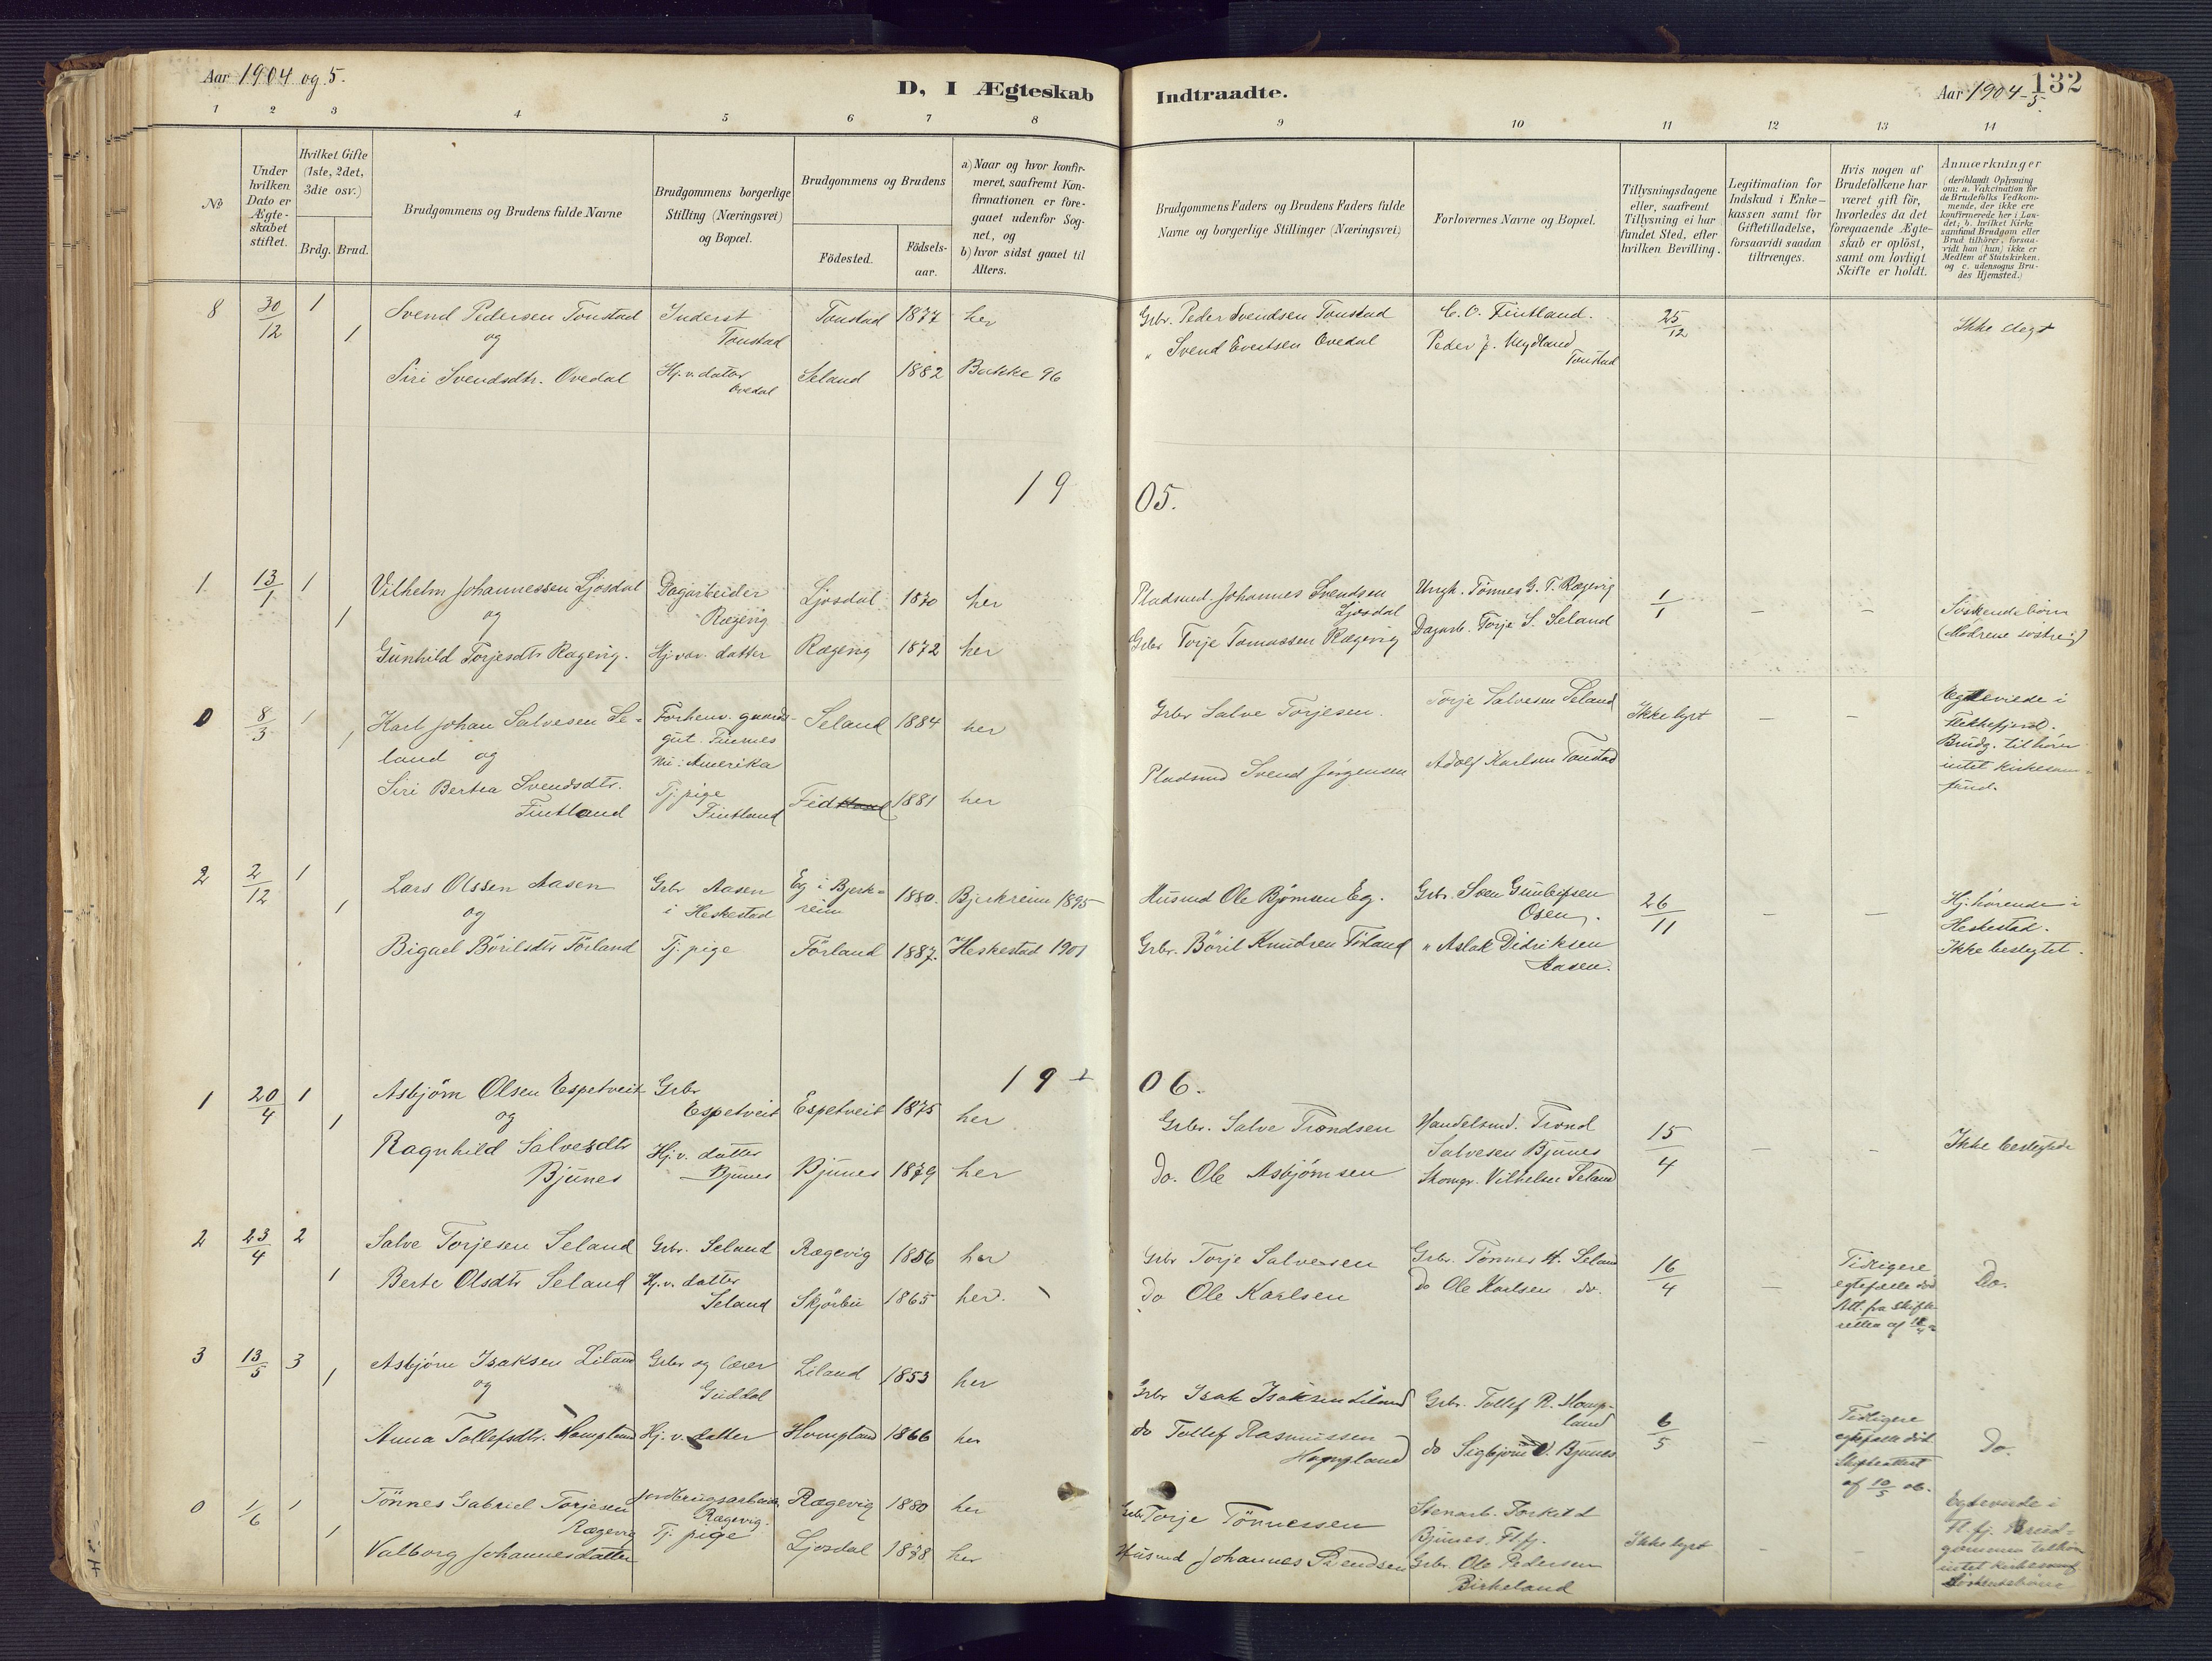 Aar 1904 og 5.
D, I Ægteskab
Indtraadte.
Aar 1904-5.
132
1 2 3 4 5 6 7 8 9 10 11 12 13 14
No
Under hvilken Dato er Ægteskabet stiftet.
Hvilket Gifte (1ste, 2det, 3die osv.)
Brdg. Brud.
Brudgommens og Brudens fulde Navne
Brudgommens borgerlige Stilling (Næringsvei) og Bopæl.
Brudgommens og Brudens
Födested.
Födsels-aar.
a) Naar og hvor konfirmeret, saafremt Konfirmationen er foregaaet udenfor Sognet, og
b) hvor sidst gaaet til Alters.
Brudgommens Faders og Brudens Faders fulde Navne og borgerlige Stillinger (Næringsvei)
Forlovernes Navne og Bopæl.
Tillysningsdagene eller, saafremt Tillysning ei har fundet Sted, efter hvilken Bevilling.
Legitimation for Indskud i Enkekassen samt for Giftetilladelse, forsaavidt saadan tiltrænges.
Hvis nogen af Brudefolkene har været gift för, hvorledes da det foregaaende Ægteskab er oplöst, samt om lovligt Skifte er holdt.
Anmærkninger (deriblandt Oplysning om: a. Vakcination for de Brudefolks Vedkommende, der ikke ere konfirmerede her i Landet; b. hvilket Kirkesamfund Brudgom eller Brud tilhörer, forsaavidt han (hun) ikke er Medlem af Statskirken, og c. udensogns Brudes Hjemsted.)
8 30/12 1 Svend Pedersen Tonstad Inderst Tonstad Tonstad 1877 her Grbr. Peder Svendsen Tonstad C. O. Fintland. 25/12 Ikke slegt
1 og
Siri Svendsdtr. Ovedal Hj. v. datter Ovedal Seland 1882 Bakke 96 " Svend Evertsen Ovedal Peder J. Mydland Tonstad
1905.
1 13/1 1 Vilhelm Johannessen Ljosdal Dagarbeider Rægevig Ljosdal 1870 her Pladsmd. Johannes Svendsen Ljosdal Ungk. Tønnes G. T. Rægevig 1/1 - - Söskendebörn (Mödrene söstre)
1 og
Gunhild Torjesdtr Rægevig. Hj. vær. datter Rægevig 1872 her Grbr Torje Tomassen Rægevig Dagarb. Torje S. Seland
0 8/3 1 Karl Johan Salvesen Seland og Forhenv. gaardsgut Nu i Amerika Seland 1884 her Grbr Salve Torjesen. Torje Salvesen Seland Ikke lyst - - Egteviede i Flekkefjord. Brudg. tilhører intet kirkesamfund.
1 Siri Bertea Svendsdtr. Fintland Tj. pige Fintland 1881 her Pladsmd Svend Jørgensen Adolf Karlsen Tonstad
2 2/12 1 Lars Olssen Aasen Grbr Aasen i Heskestad Eg i Bjerkreim 1880. Bjerkreim 1895 Husmd Ole Bjørnsen Eg. Grbr. Sven Gunleifsen Osen. 26/11 - - Hj. hørende i Heskestad. Ikke beslegtet.
1 og
Bigael Börilsdtr Törland Tj. pige Törland 1887. Heskestad 1901 Grbr. Böril Knudsen Törland " Aslak Didriksen Aasen.
1906.
1 20/4 1 Asbjørn Olsen Espetveit Grbr Espetveit Espetveit 1875 her Grbr. Salve Trondsen Handelsmd. Trond Salvesen Bjunes 15/4 - - Ikke beslegtede
1 og
Ragnhild Salvesdtr Bjunes Hj. v. datter Bjunes Bjunes 1879 her do. Ole Asbjørnsen Skomgr. Vilhelm Seland
2 23/4 2 Salve Torjesen Seland Grbr. Seland Rægevig 1856 her Grbr Torje Salvesen Grbr. Tønnes H. Seland 16/4 - Tidligere egtefælle död Att. fra skifteretten af Do.
1 Berte Olsdtr Seland Hj. v. datter Seland Skjörbu 1865 her. do Ole Karlsen do Ole Karlsen do.
3 13/5 3 Asbjørn Isaksen Liland Grbr og lærer Guddal Liland 1853 her Grbr Isak Isaksen Liland Grbr. Tollef R. Hompland 6/5 - Tidligere egtefælle död. Skifteattest af 10/5 06. Do.
1 og
Anna Tollefsdtr. Hompland Hj. v. datter Hompland 1866 her do Tollef Rasmussen Hompland do Sigbjørn O. Bjunes
0 1/6 1 Tönnes Gabriel Torjesen Rægevig Jordbrugsarbeider, Rægevig. Rægevig 1880 her Grbr Torje Tönnessen Stenarb. Torkild Bjunes, Flfj. Ikke lyst - - Egteviede i Fl. fj. Brudgommen tilhører intet kirkesamf Söskendebörn
1 Valborg Johannesdatter Tj. pige Ljosdal 1878 her Husmd Johannes Svendsen Grbr. Ole Pedersen Birkeland